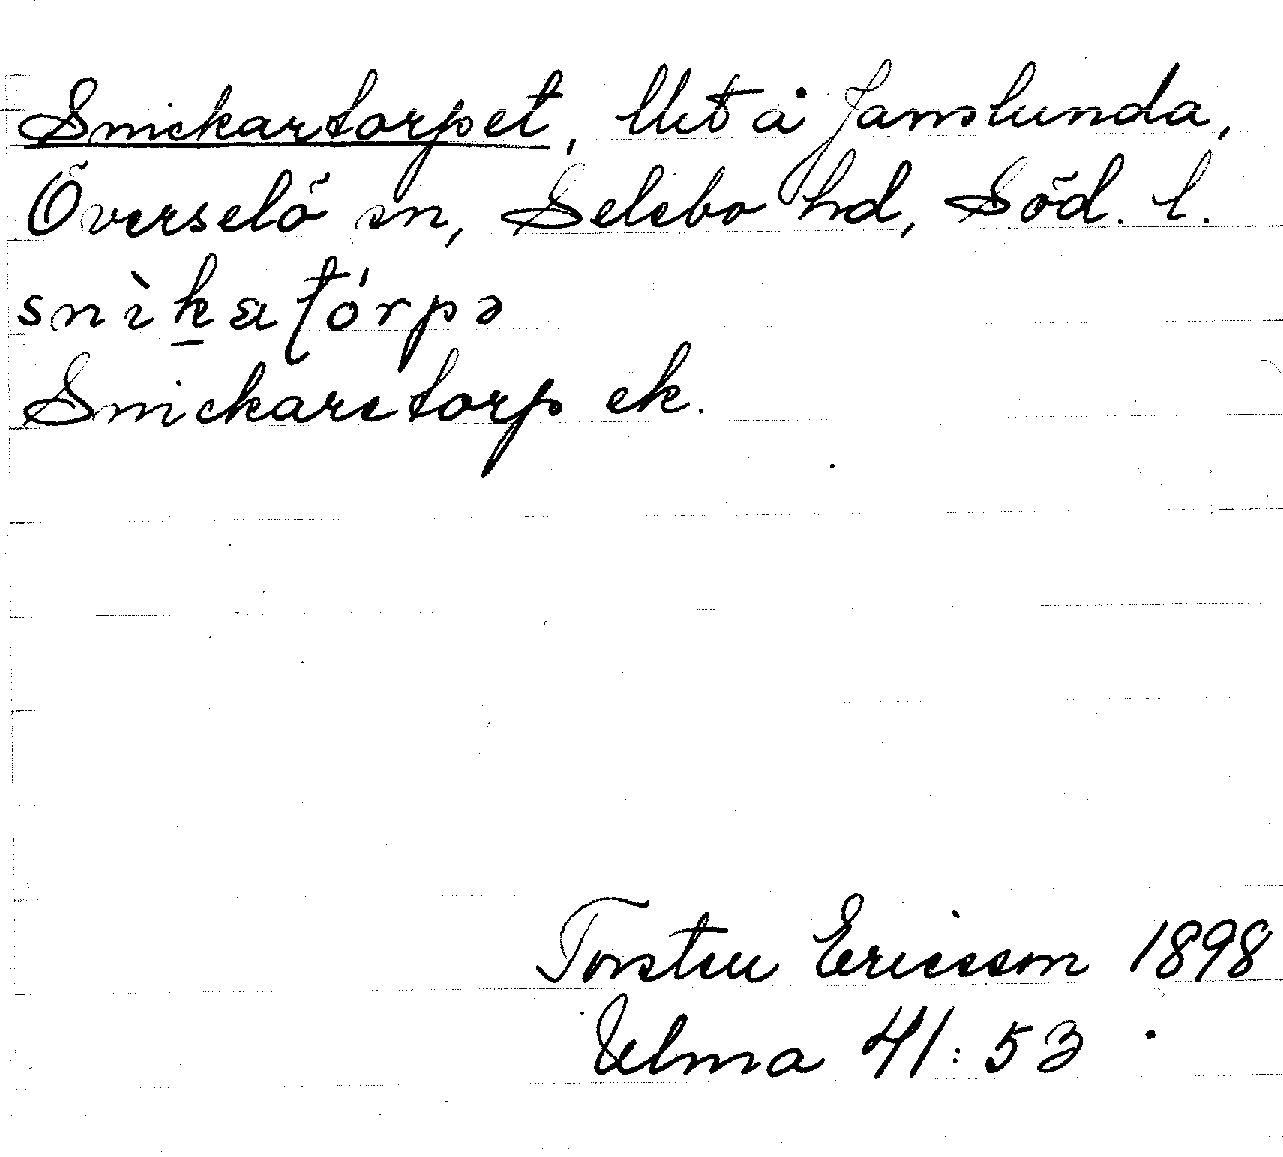 Snickartorpet, lht å Janslunda,
Överselö sn, Selebo hd, Söd. l.
snìkatórpə
Snickaretorp ek.
Torsten Ericsson 1898
Ulma 41:53